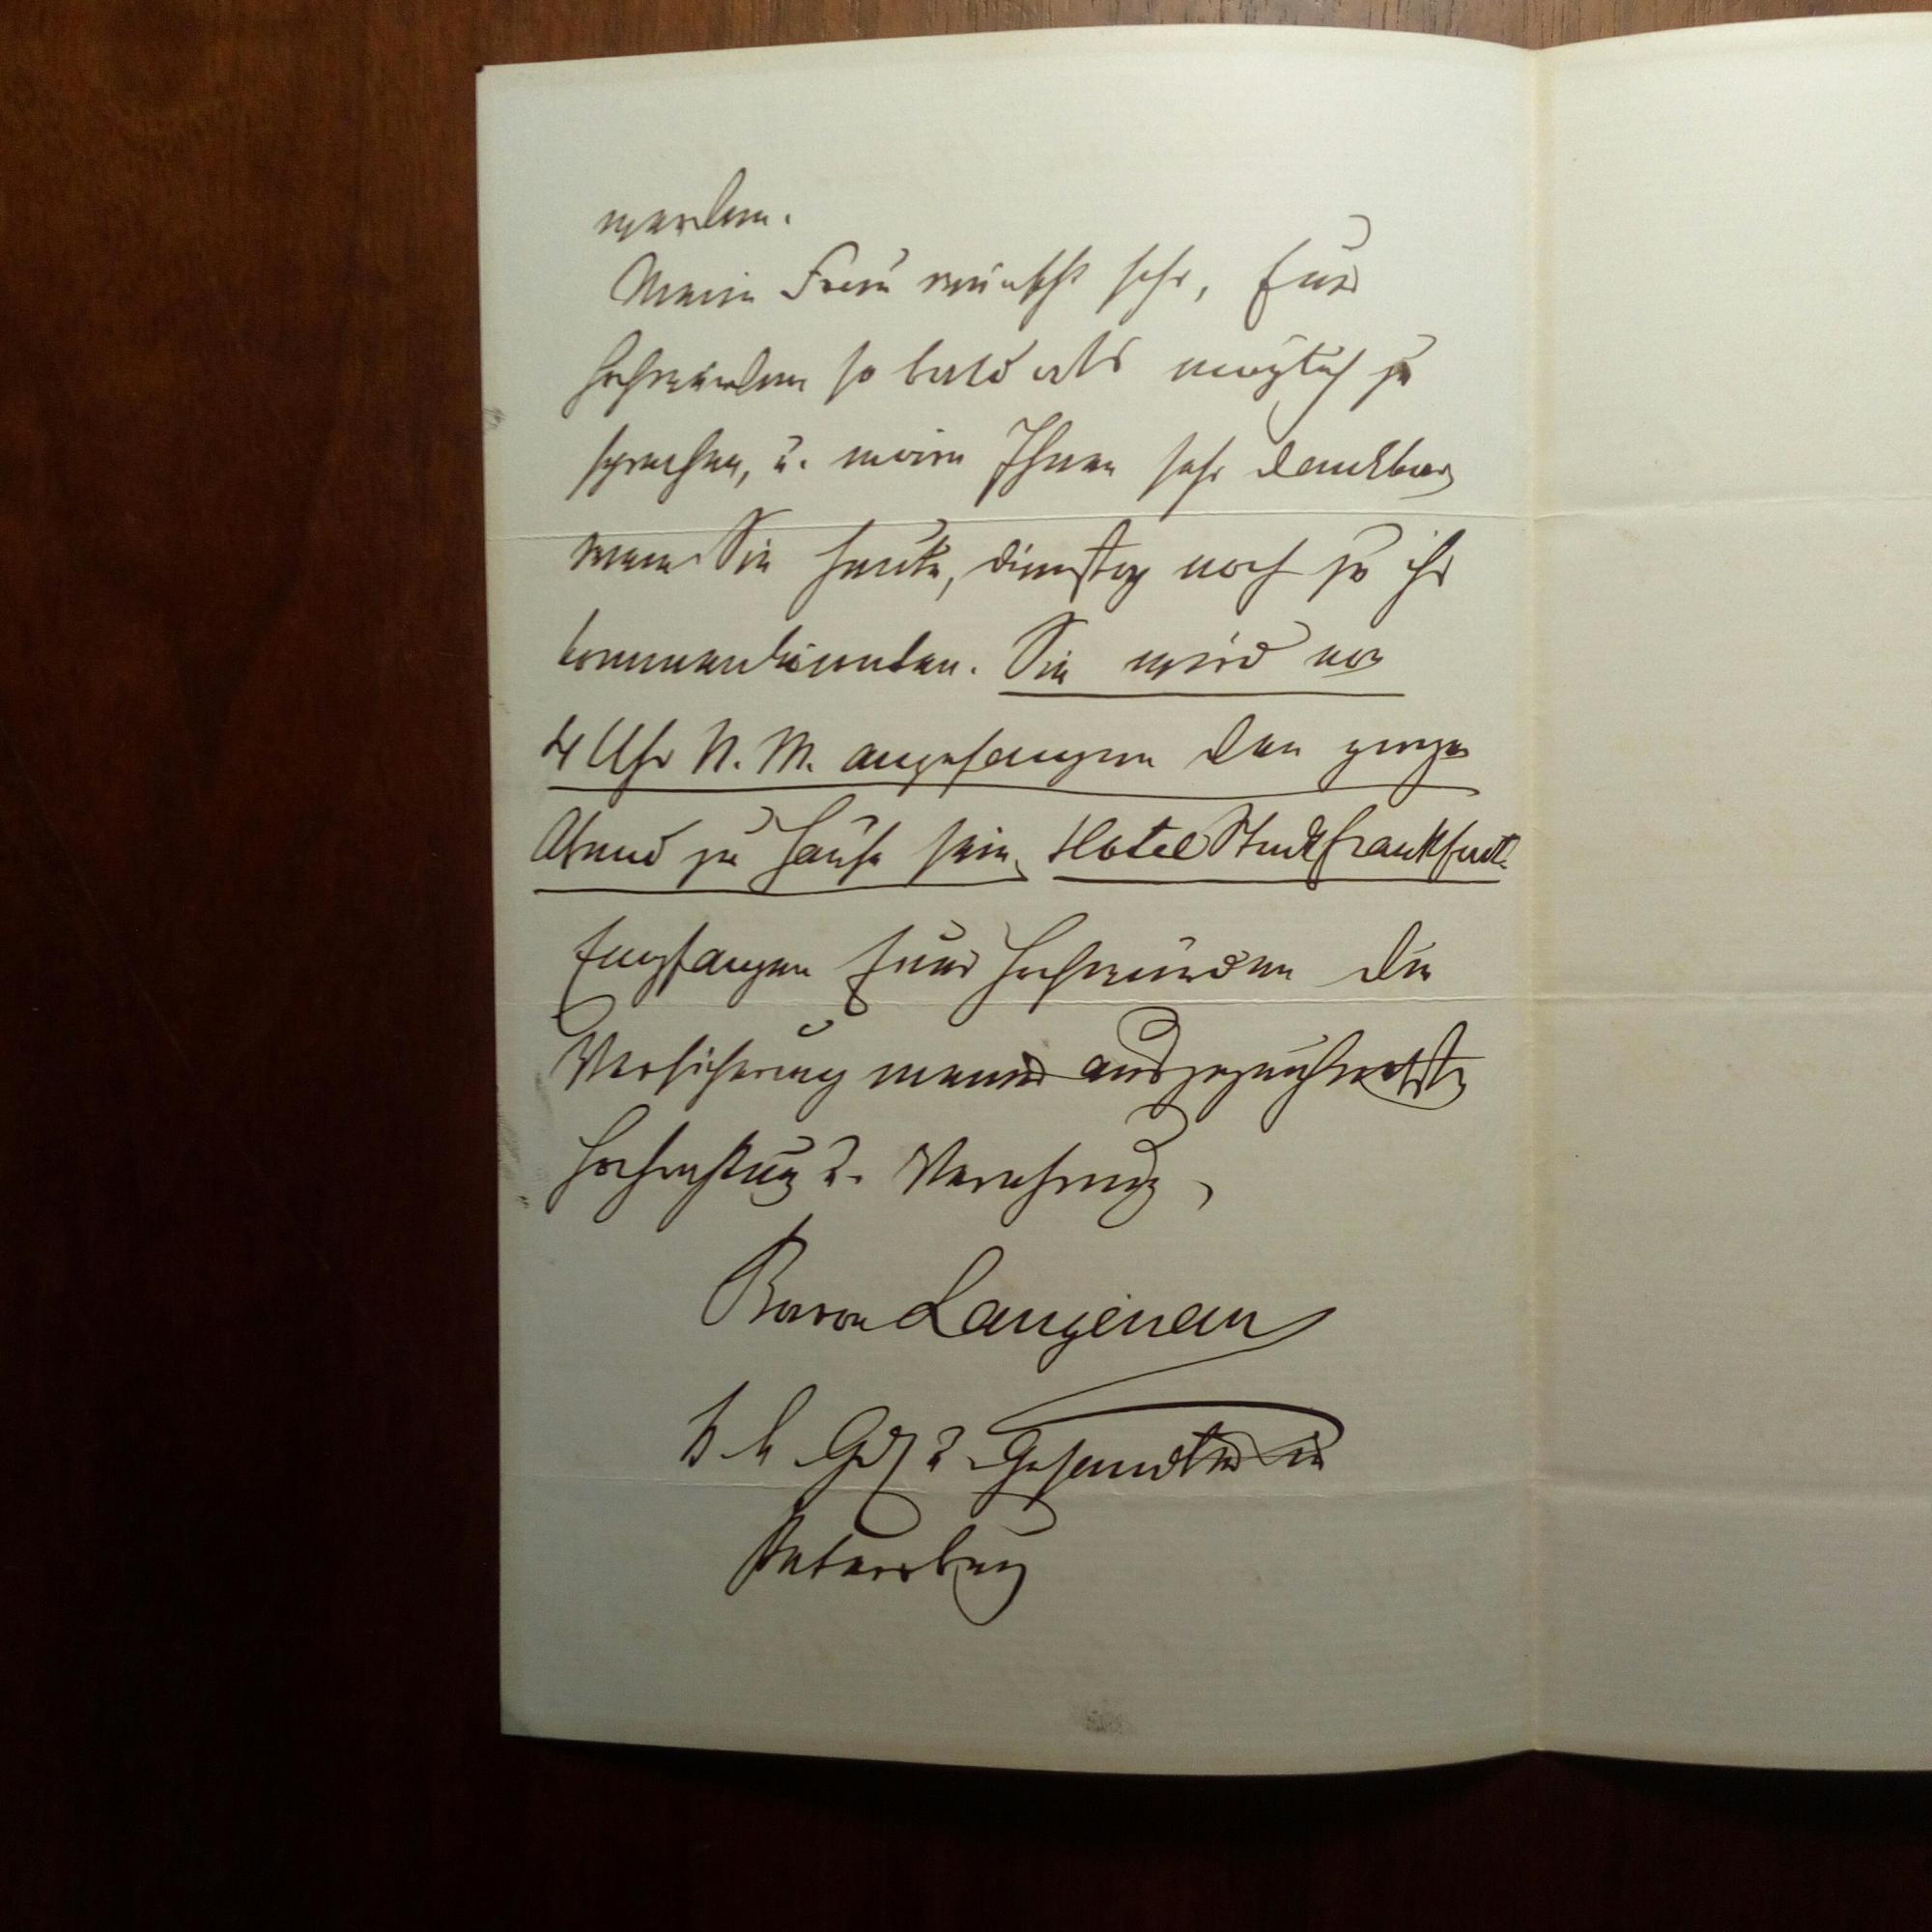 werden.
Meine Frau wünscht sehr, Euer
Hochwürden so bald als möglich zu
sprechen, u. wäre Ihnen sehr dankbar
wenn Sie heute, Dienstag noch zu ihr
kommen könnten. Sie wird von
4 Uhr N. M. angefangen den ganzen
Abend zu Hause sein, Hotel Stadt Frankfurt.
Empfangen Euer Hochwürden die
Versicherung meiner ausgezeichnetsten
Hochachtung u. Verehrung,
Baron Langenau
k. k. u. Gesandter in
Petersburg